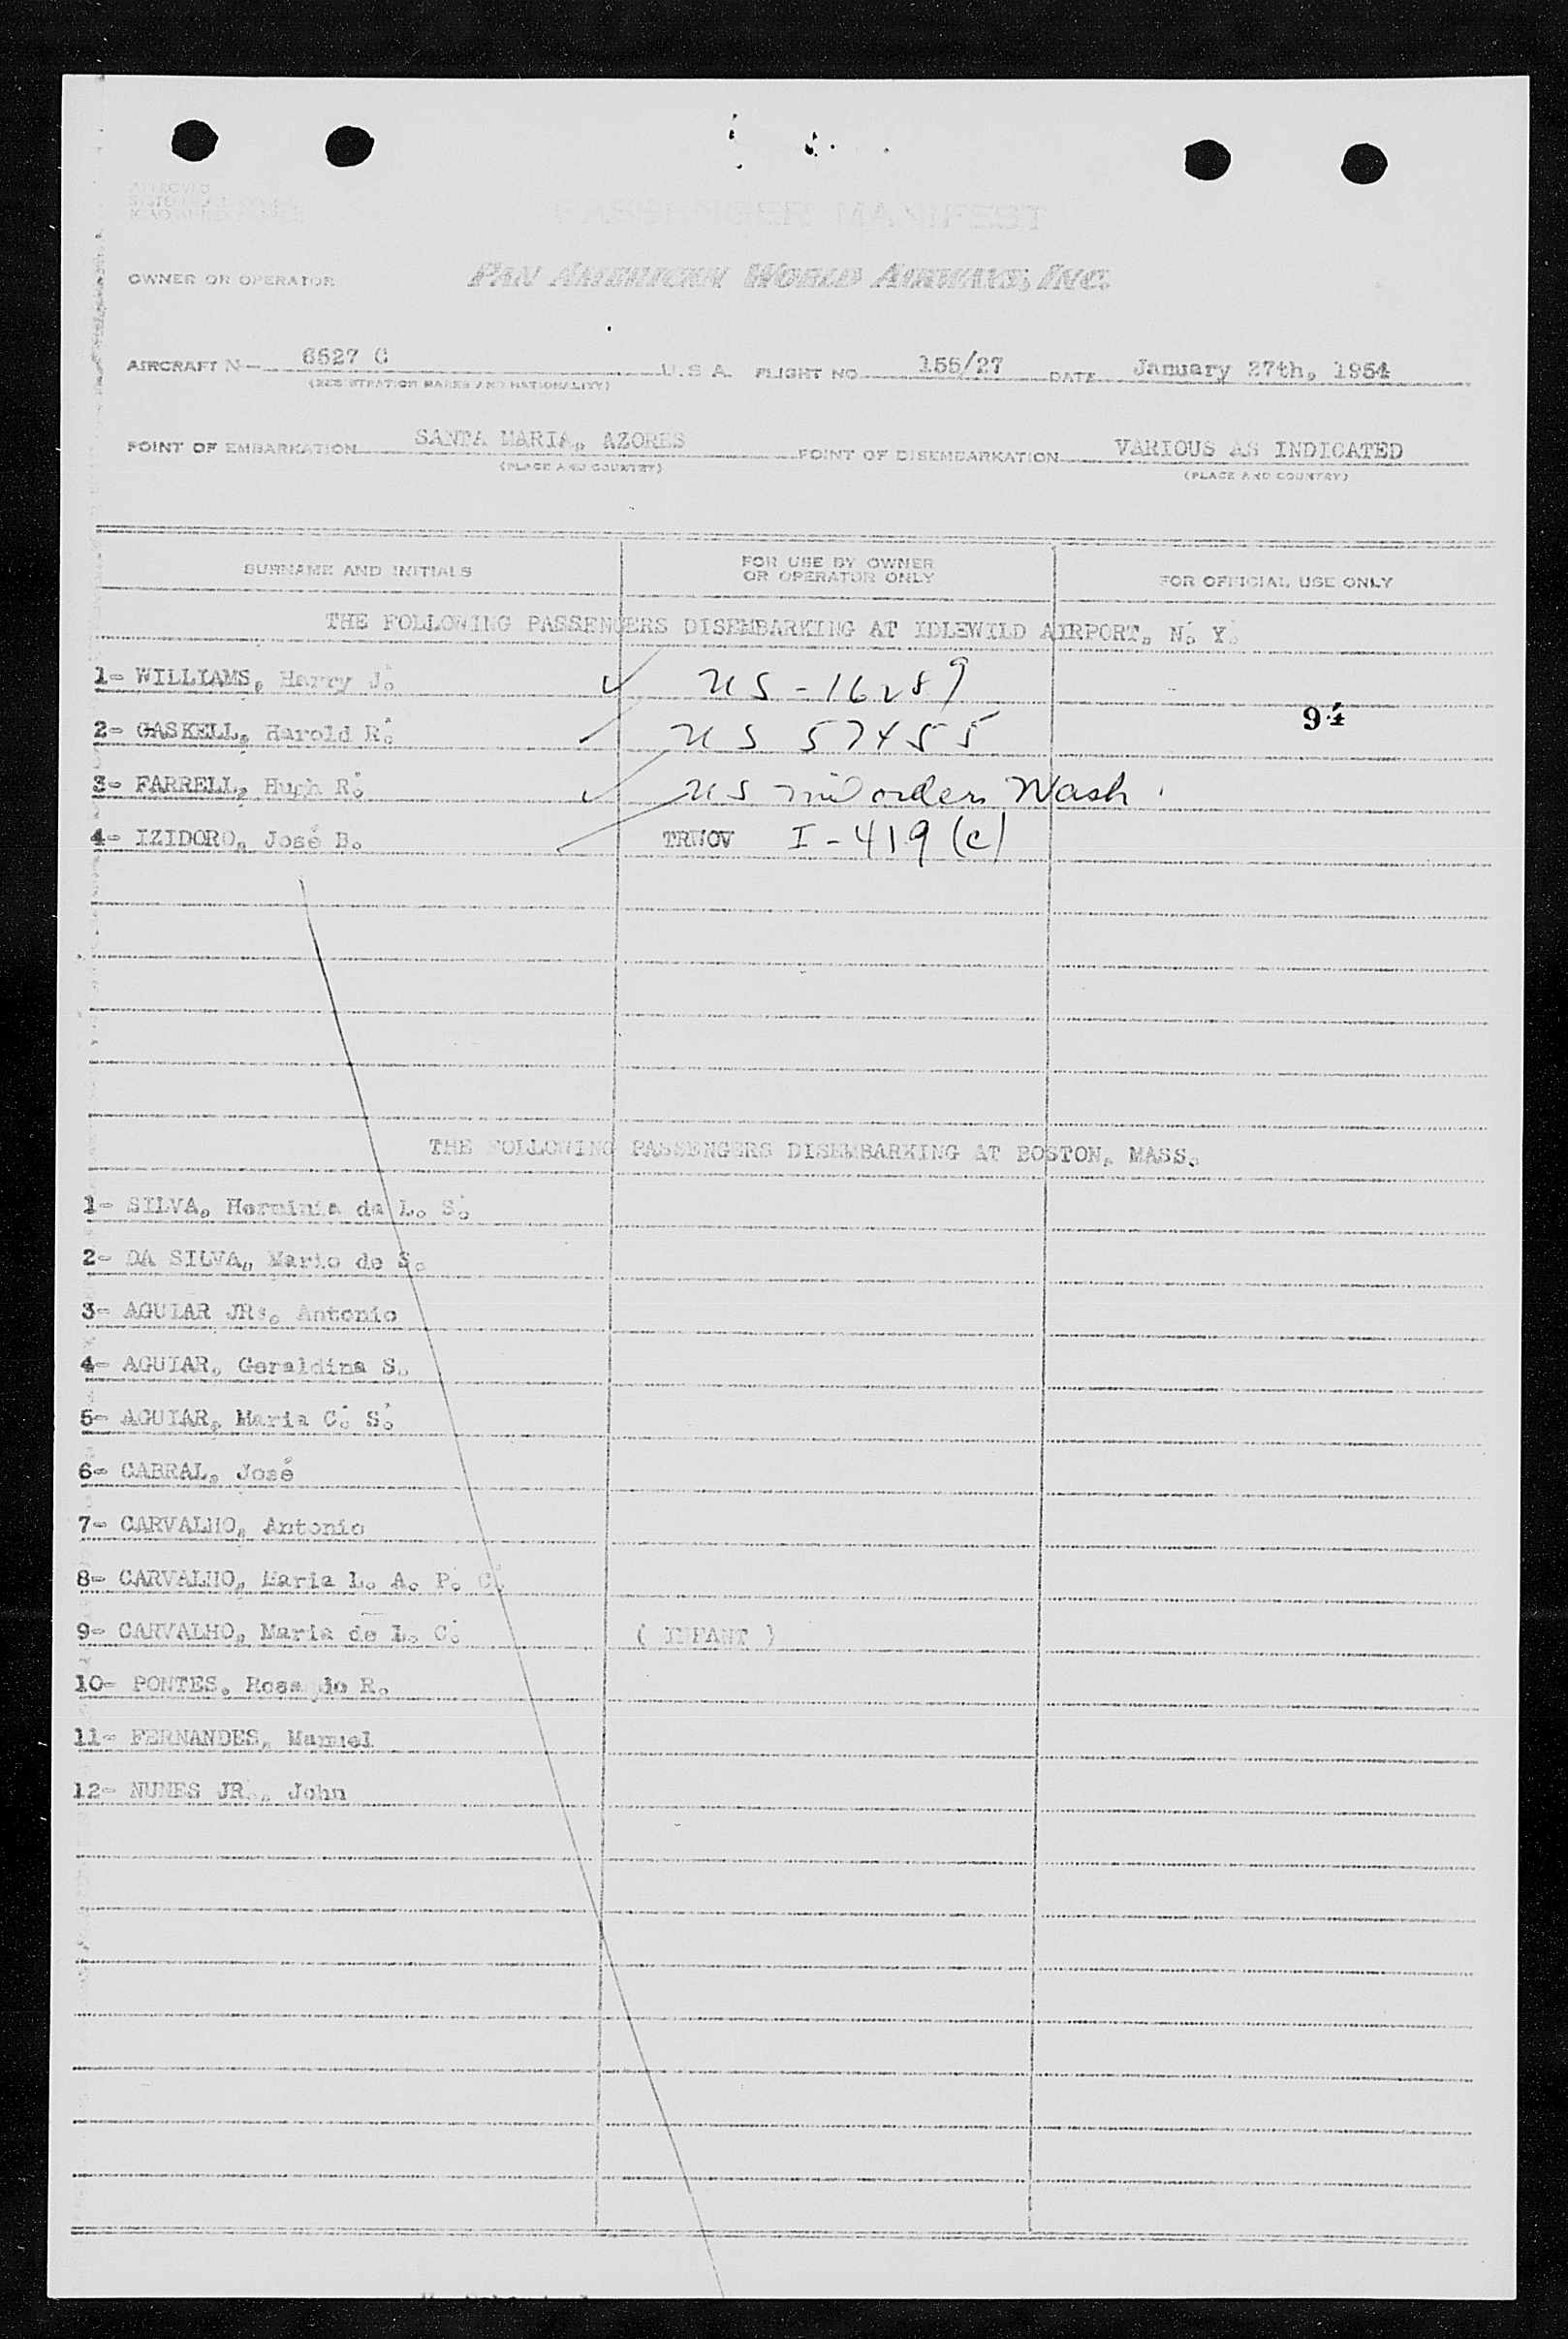 APPROVED
PASSENGER MANIFEST
OWNER OR OPERATOR PAN AMERICAN WORLD AIRWAYS, INC.
AIRCRAFT N- 6527 C U.S.A. FLIGHT NO 155/27 DATE January 27th, 1954
(REGISTRATION MARKS AND NATIONALITY)
POINT OF EMBARKATION SANTA MARIA, AZORES POINT OF DISEMBARKATION VARIOUS AS INDICATED
(PLACE AND COUNTRY) (PLACE AND COUNTRY)
SURNAME AND INITIALS FOR USE BY OWNER OR OPERATOR ONLY FOR OFFICIAL USE ONLY
THE FOLLOWING PASSENGERS DISEMBARKING AT IDLEWILD AIRPORT, N. Y.
1- WILLIAMS, Harry J. US-16289
2- GASKELL, Harold R. US 57455 94
3- FARRELL, Hugh R. US mil orders Wash
4- IZIDORO, José B. TRWOV I-419(c)
THE FOLLOWING PASSENGERS DISEMBARKING AT BOSTON, MASS.
1- SILVA, Herminia da L. S.
2- DA SILVA, Mario de S.
3- AGUIAR JR., Antonio
4- AGUIAR, Geraldina S.
5- AGUIAR, Maria C. S.
6- CABRAL, José
7- CARVALHO, Antonio
8- CARVALHO, Maria L. A. P. C.
9- CARVALHO, Maria de L. C. ( INFANT )
10- PONTES, Rosa do R.
11- FERNANDES, Manuel
12- NUNES JR., John